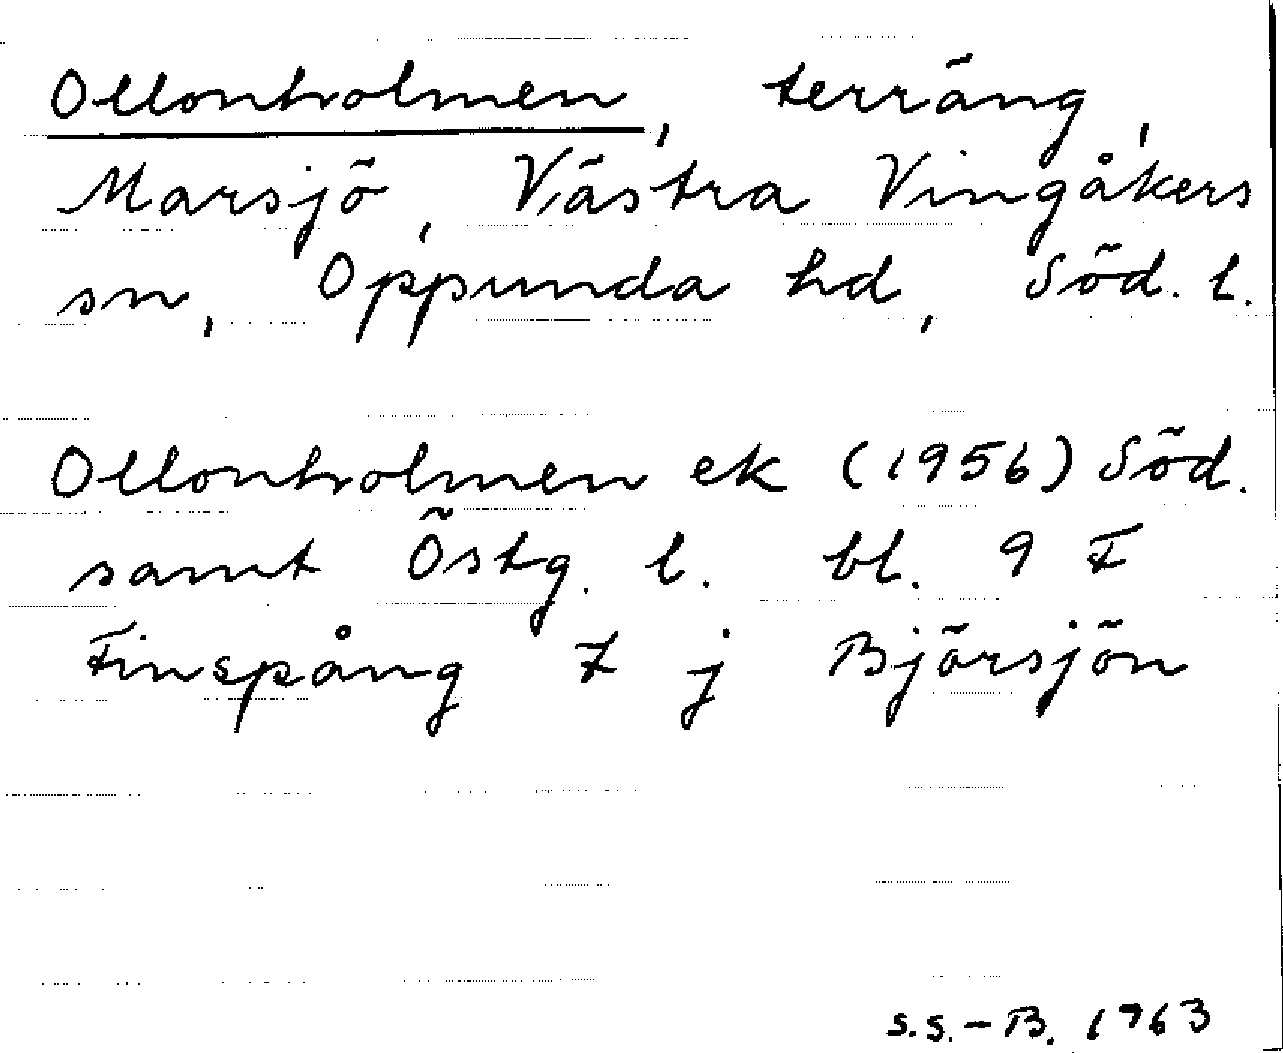 Ollonholmen, terräng,
Marsjö, Västra Vingåkers
sn, Oppunda hd, Söd. l.
Ollonholmen ek (1956) Söd.
samt Östg. l. bl. 9 F
Finspång 7 j Björsjön
S.S.-B. 1963